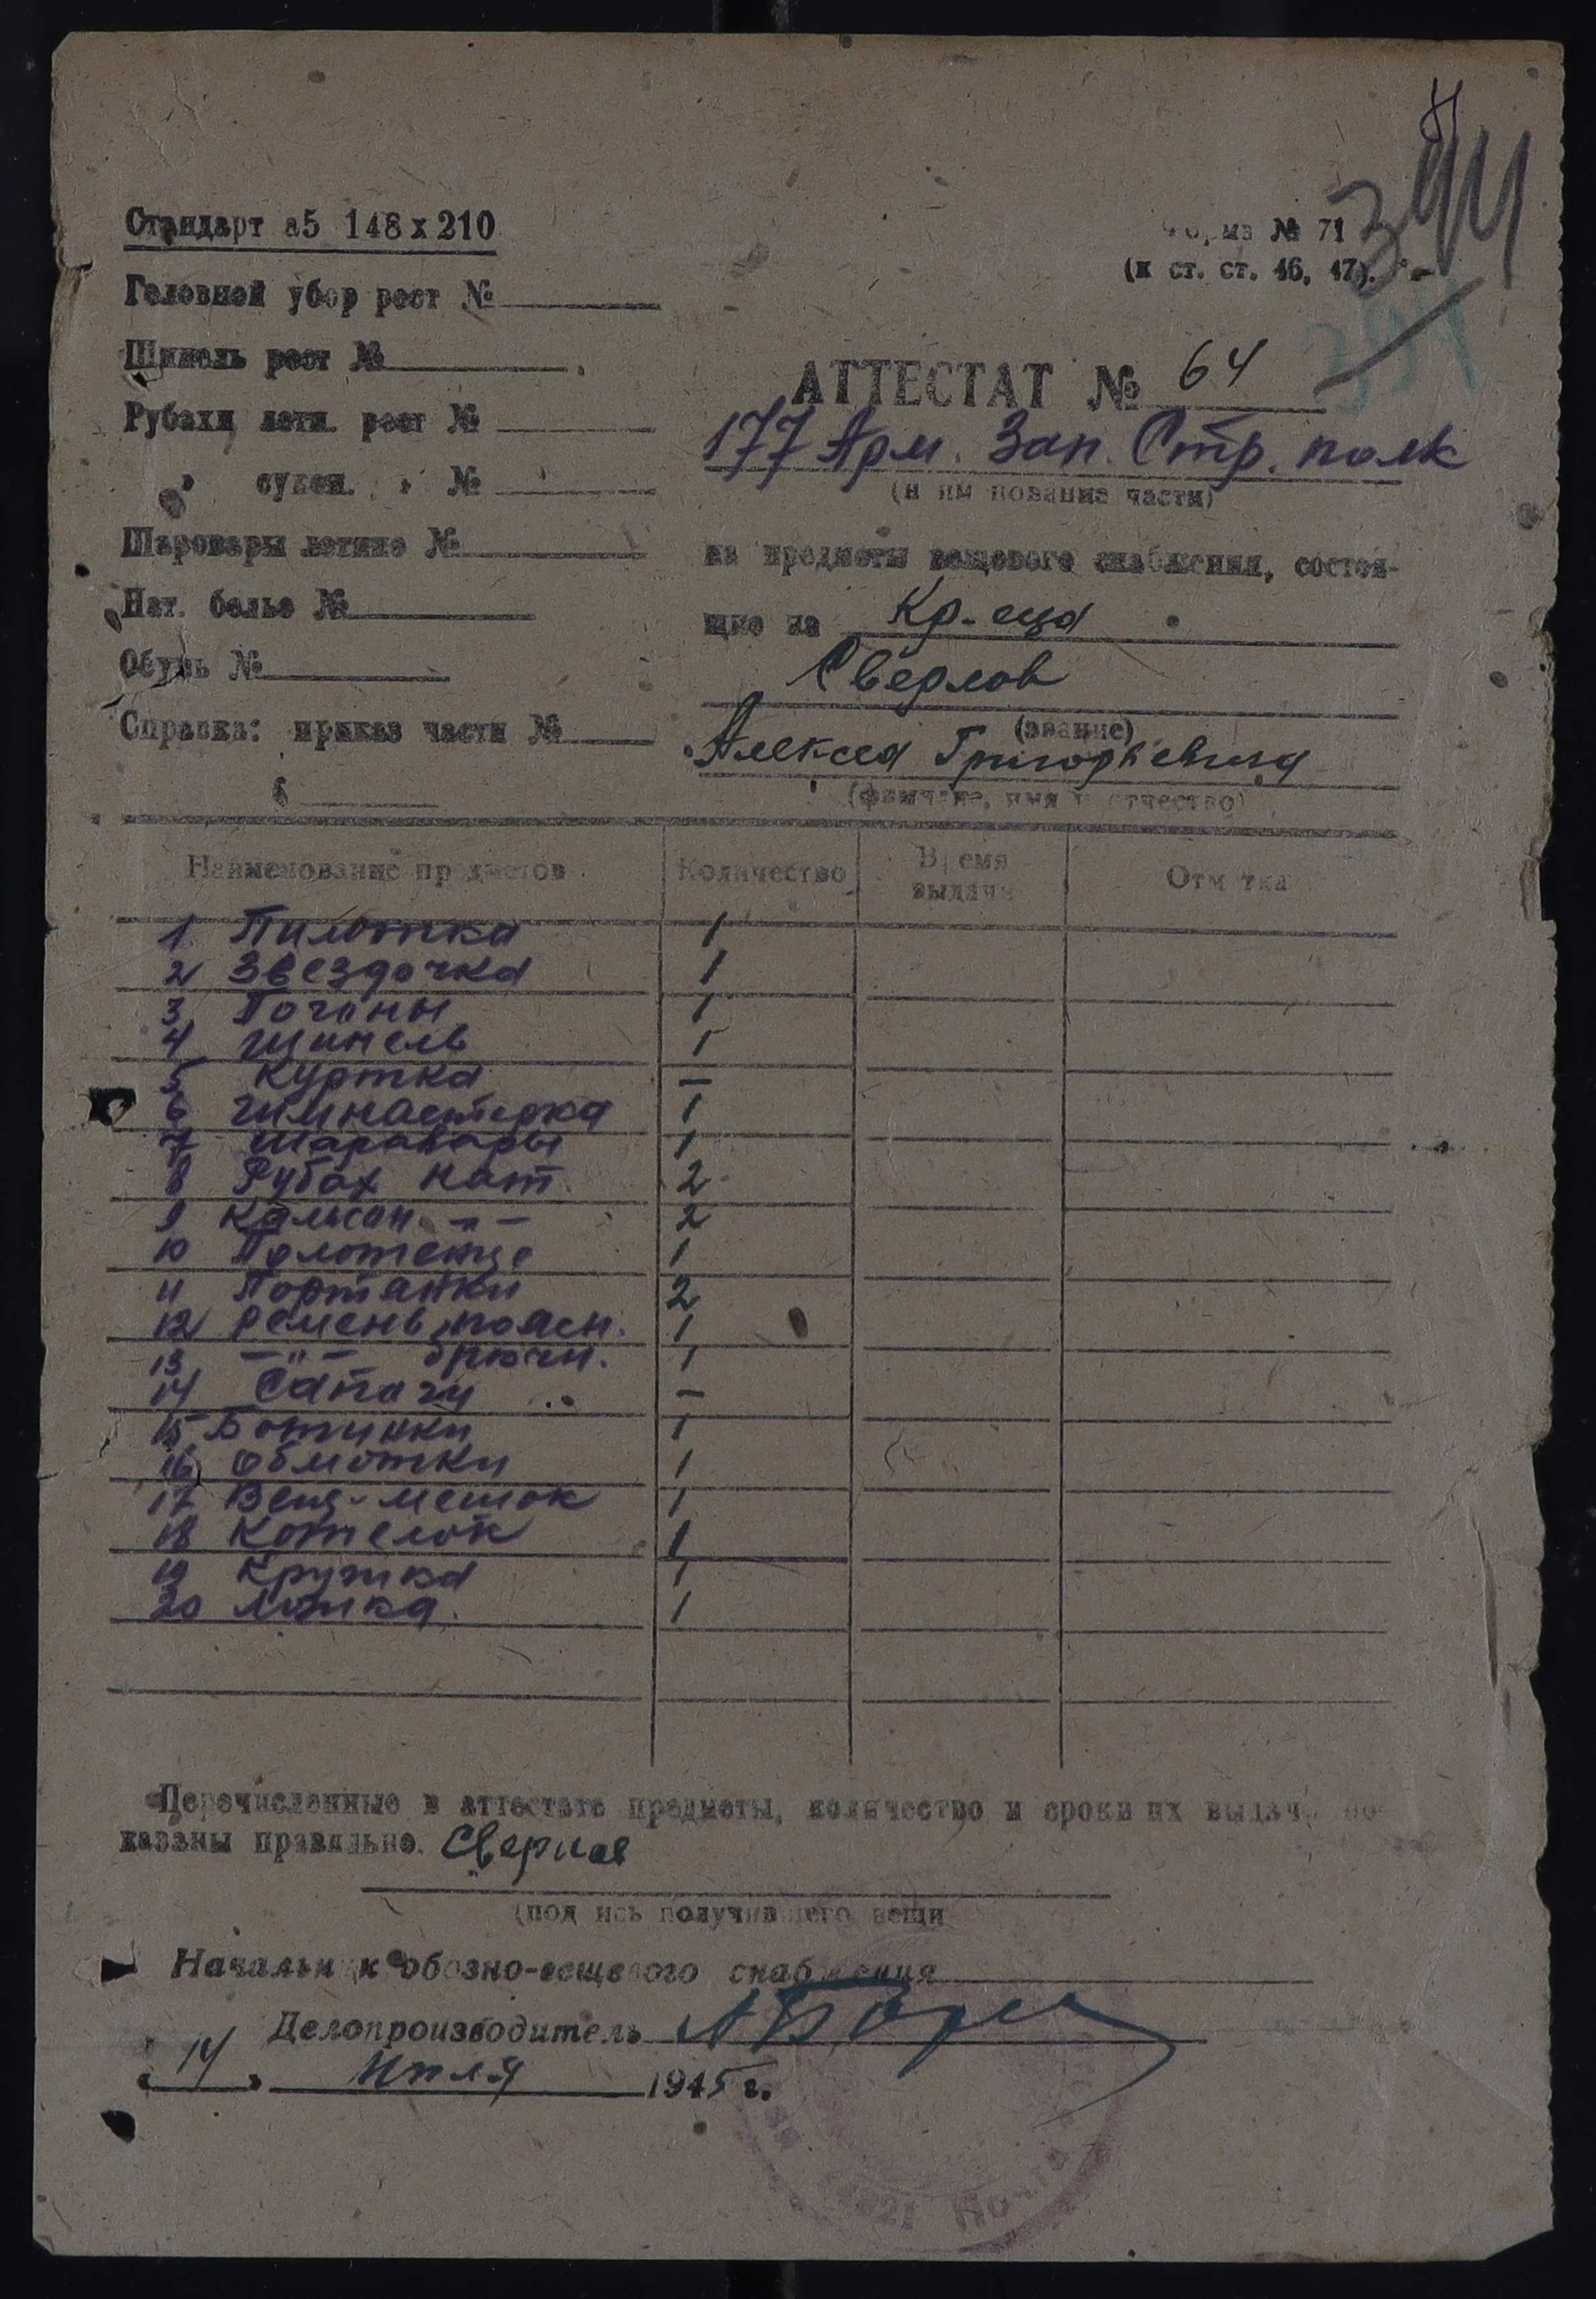 394
394
Стандарт а5 148х210
Форма № 71
(к ст. ст. 46, 47).
Головной убор рост №
Шинель рост №
Рубахи летн. рост №
" сукон. " №
Шаровары летние №
Нат. белье №
Обувь №
Справка: приказ части №
АТТЕСТАТ № 64
177 Арм. Зап. Стр. полк
(наименование части)
на предметы вещевого снабжения, состоя-
щие на Кр-еца
Сверлов
(звание)
Алексея Григорьевича
(фамилие, имя и отчество)
Наименование предметов Количество Время выдачи Отметка
1. Пилотка 1
2 Звездочка 1
3 Погоны 1
4 Шинель 1
5 Куртка —
6 Гимнастерка 1
7 Шаравары 1
8 Рубах нат. 2
9 Кальсон. -"- 2
10 Полотенце 1
11 Портянки 2
12 Ремень поясн. 1
13 -"- брючн. 1
14 Сапоги —
15 Ботинки 1
16 Обмотки 1
17 Вещ-мешок 1
18 Котелок 1
19 Кружка 1
20 Ложка. 1
Перечисленные в аттестате предметы, количество и сроки их выдачи по-
казаны правильно.
(подпись получившего вещи
Начальник обозно-вещевого снабжения
Делопроизводитель
" 14 " Июля 1945 г.
Почта